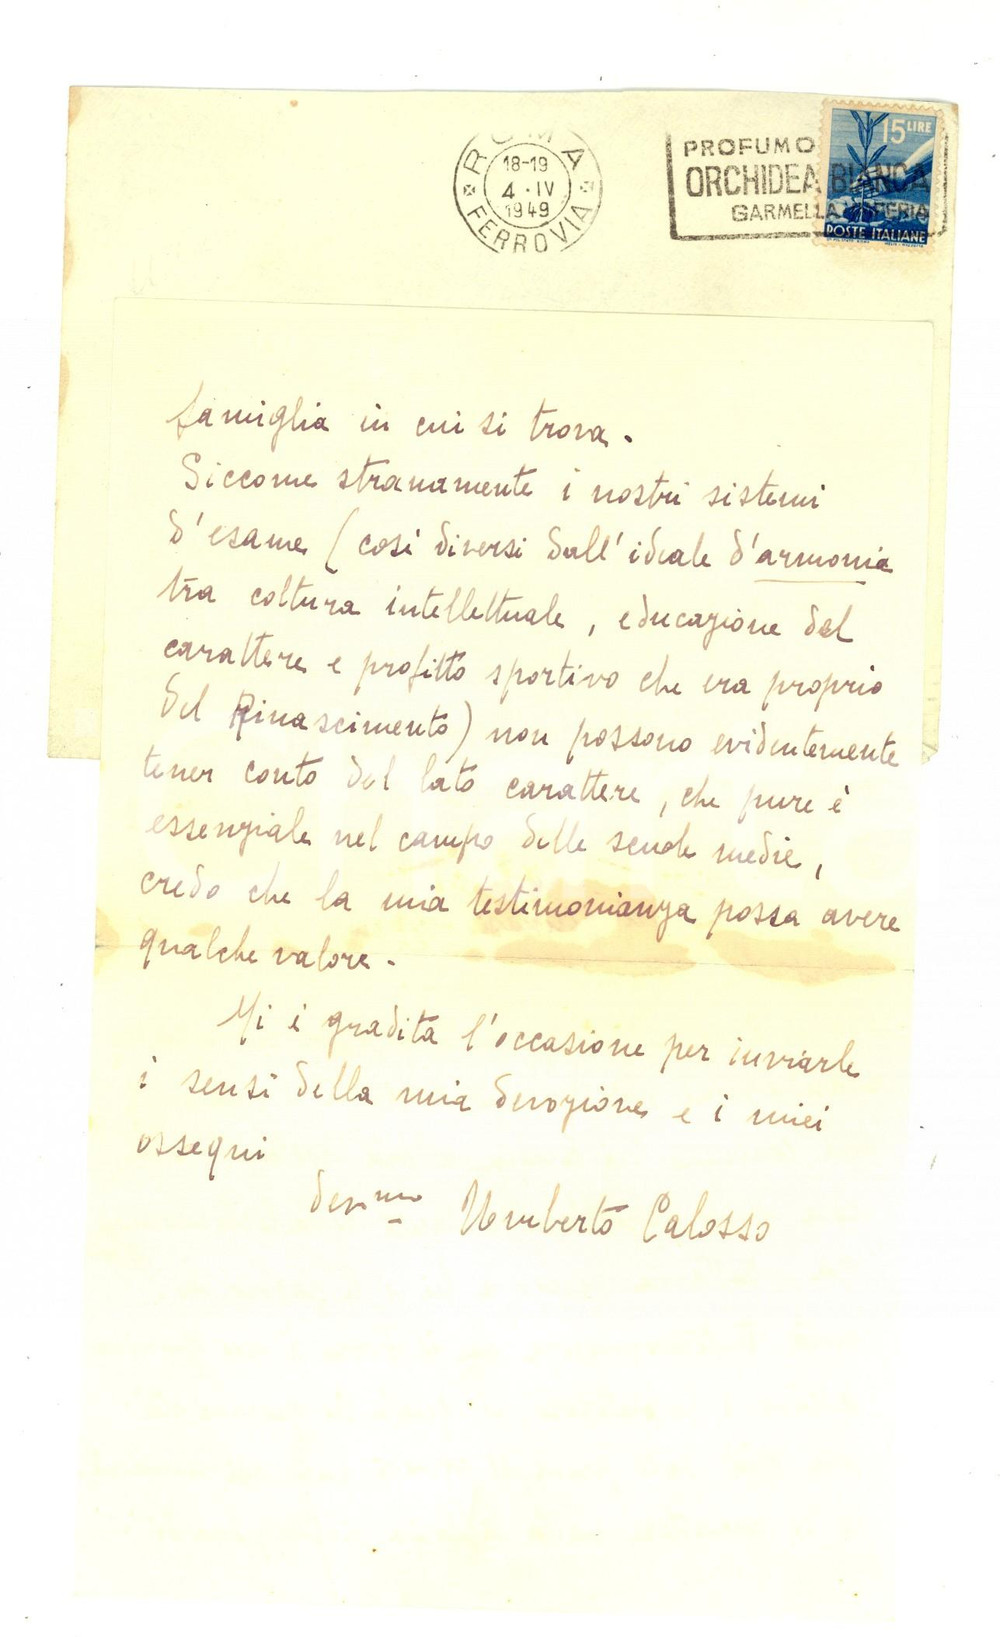 ROMA
18-19
4 · IV
1949
FERROVIA
PROFUMO
ORCHIDEA BIANCA
GARMELLA VOGHERIA
15 LIRE
POSTE ITALIANE
famiglia in cui si trova.
Siccome stranamente i nostri sistemi
d'esame (così diversi dall'ideale d'armonia
tra coltura intellettuale, educazione del
carattere e profitto sportivo che era proprio
del Rinascimento) non possono evidentemente
tener conto del lato carattere, che pure è
essenziale nel campo delle scuole medie,
credo che la mia testimonianza possa avere
qualche valore.
Mi è gradita l'occasione per inviarle
i sensi della mia devozione e i miei
ossequi
dev.mo Umberto Calosso